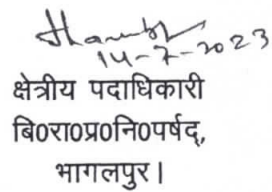 14-7-2023
क्षेत्रीय पदाधिकारी
बि0रा0प्र0नि0पर्षद्,
भागलपुर।